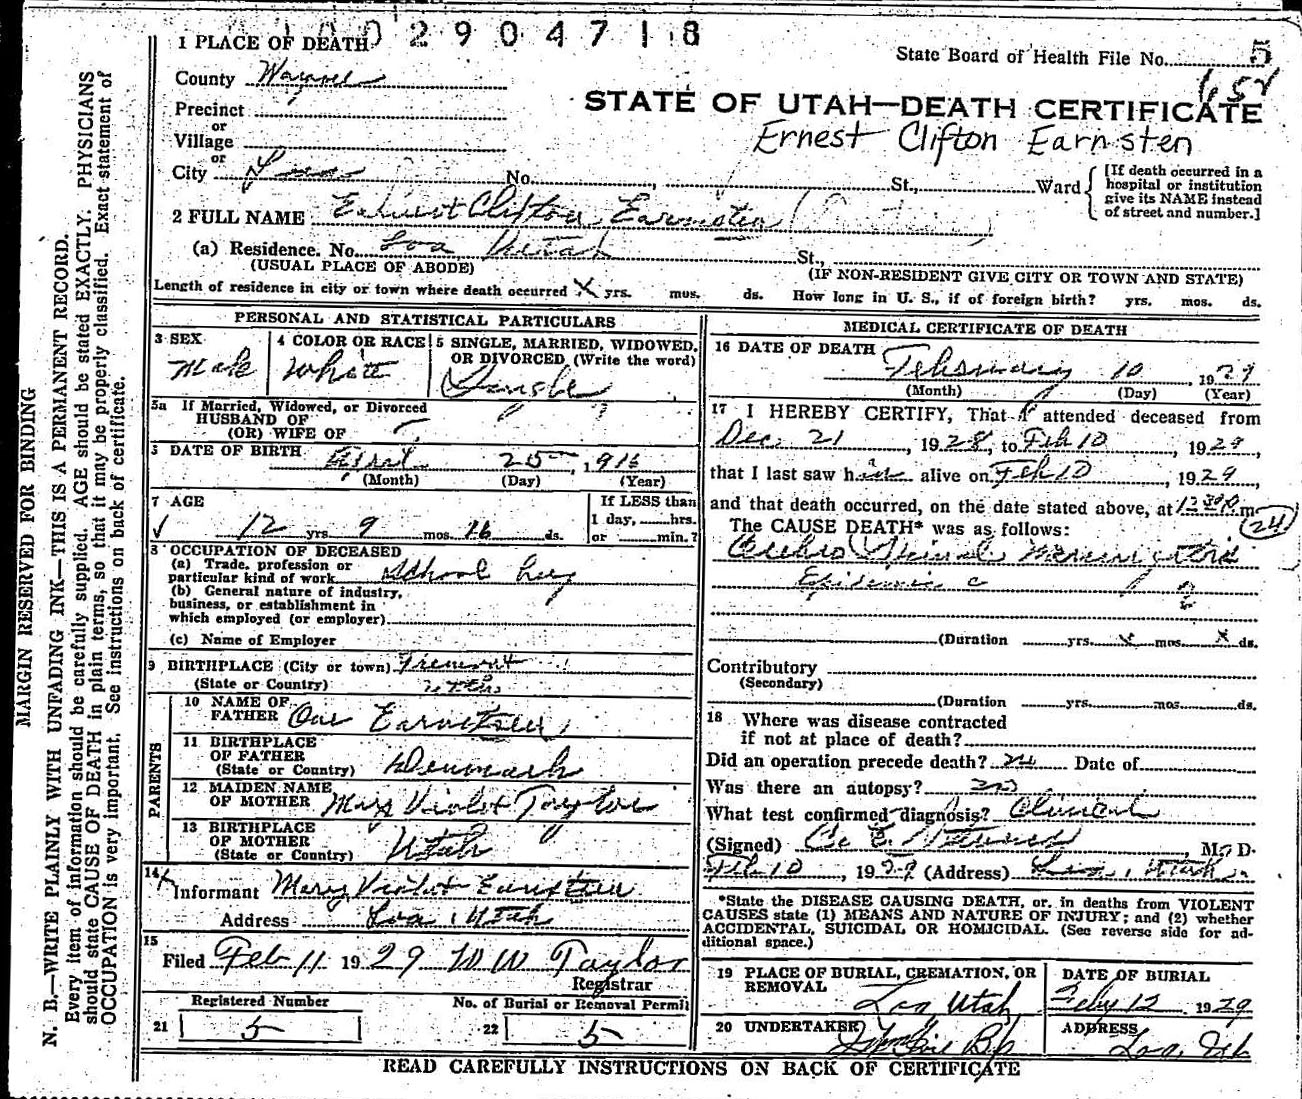 0 0 2 9 0 4 7 1 8
1 PLACE OF DEATH
State Board of Health File No. 5
County Wayne
STATE OF UTAH—DEATH CERTIFICATE
Ernest Clifton Earnsten
Precinct
or
Village
or
City Loa No. St., Ward
[If death occurred in a hospital or institution give its NAME instead of street and number.]
2 FULL NAME Ernest Clifton Earnsten
(a) Residence. No. Loa Utah St.,
(USUAL PLACE OF ABODE) (IF NON-RESIDENT GIVE CITY OR TOWN AND STATE)
Length of residence in city or town where death occurred X yrs. mos. ds. How long in U. S., if of foreign birth? yrs. mos. ds.
PERSONAL AND STATISTICAL PARTICULARS
3 SEX
Male
4 COLOR OR RACE
White
5 SINGLE, MARRIED, WIDOWED,
OR DIVORCED (Write the word)
Single
5a If Married, Widowed, or Divorced
HUSBAND OF
(OR) WIFE OF
DATE OF BIRTH April 25, 1916
(Month) (Day) (Year)
7 AGE
12 yrs 9 mos. 16 ds.
If LESS than
1 day, hrs.
or min.?
8 OCCUPATION OF DECEASED
(a) Trade, profession or
particular kind of work School boy
(b) General nature of industry,
business, or establishment in
which employed (or employer)
(c) Name of Employer
9 BIRTHPLACE (City or town) Fremont
(State or Country) Utah
PARENTS
10 NAME OF
FATHER Earnstsen
11 BIRTHPLACE
OF FATHER
(State or Country) Denmark
12 MAIDEN NAME
OF MOTHER Mary Violet Taylor
13 BIRTHPLACE
OF MOTHER
(State or Country) Utah
14 Informant Mary Violet Earnsten
Address Loa, Utah
15 Filed Feb 11 1929 W W Taylor
Registrar
Registered Number No. of Burial or Removal Permit
21 5 22 5
MEDICAL CERTIFICATE OF DEATH
16 DATE OF DEATH February 10, 1929
(Month) (Day) (Year)
17 I HEREBY CERTIFY, That I attended deceased from
Dec. 21, 1928, to Feb 10, 1929
that I last saw him alive on Feb 10, 1929
and that death occurred, on the date stated above, at 12 30 P m.
24
The CAUSE DEATH* was as follows:
Cerebro Spinal Meningitis
Epidemic
(Duration yrs. X mos. X ds.
Contributory
(Secondary)
(Duration yrs. mos. ds.
18 Where was disease contracted
if not at place of death?
Did an operation precede death? no Date of
Was there an autopsy? no
What test confirmed diagnosis? Clinical
(Signed) M. D.
Feb 10, 1929 (Address) Loa, Utah.
*State the DISEASE CAUSING DEATH, or. in deaths from VIOLENT
CAUSES state (1) MEANS AND NATURE OF INJURY; and (2) whether
ACCIDENTAL, SUICIDAL OR HOMICIDAL. (See reverse side for ad-
ditional space.)
19 PLACE OF BURIAL, CREMATION, OR
REMOVAL
Loa, Utah
DATE OF BURIAL
Feby 12 1929
20 UNDERTAKER
ADDRESS
Loa, Ut
READ CAREFULLY INSTRUCTIONS ON BACK OF CERTIFICATE
MARGIN RESERVED FOR BINDING
N. B.—WRITE PLAINLY WITH UNFADING INK—THIS IS A PERMANENT RECORD.
Every item of information should be carefully supplied. AGE should be stated EXACTLY. PHYSICIANS
should state CAUSE OF DEATH in plain terms, so that it may be properly classified. Exact statement of
OCCUPATION is very important. See instructions on back of certificate.